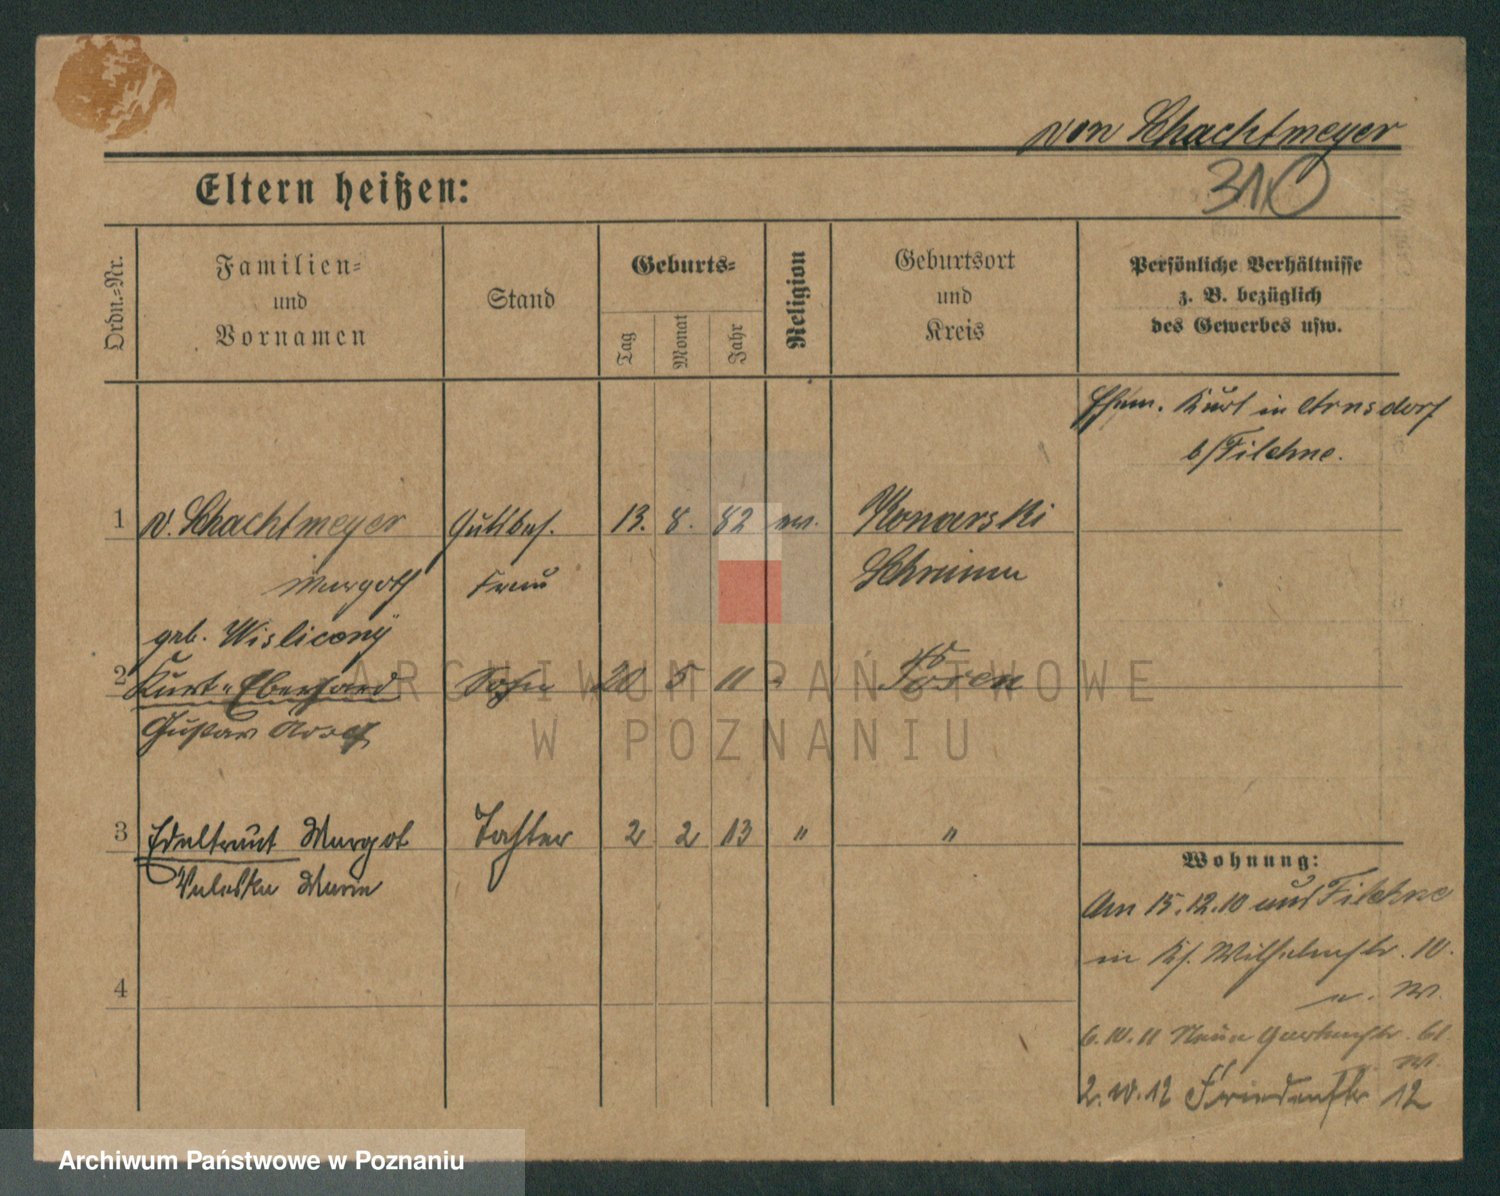 von Schachtmeyer
310
Eltern heißen:
Ordn.=Nr.
Familien=
und
Vornamen
Stand
Geburts=
Tag
Monat
Jahr
Religion
Geburtsort
und
Kreis
Persönliche Verhältnisse
z. B. bezüglich
des Gewerbes usw.
Ehem. Kurt in Arnsdorf
b/Filehne.
1 v. Schachtmeyer Gutsbes. 13. 8. 82 ev. Konarski
Margoth Frau Schrimm
geb. Wisliceny
2 Kurt-Eberhard Sohn 20 5 11 " Posen
Gustav
3 Edeltraut Margot Tochter 2 2 13 " "
Valeska Marie
4
Wohnung:
Am 15.12.10 aus Filehne
in Ks. Wilhelmstr. 10.
v. W.
6.10.11 Neue Gartenstr. 61
v. W.
2.10.12 Friedenstr 12
ARCHIWUM PAŃSTWOWE
W POZNANIU
Archiwum Państwowe w Poznaniu